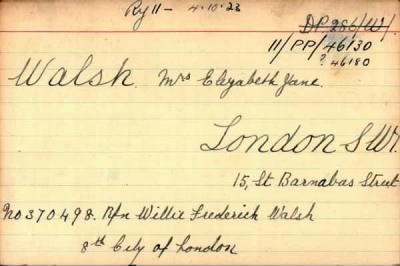 Ry 11 - 4.10.23
DP 286/W/
11/PP/46130
? 46180
Walsh. Mrs Elizabeth Jane.
London S.W1.
15, St Barnabas Street
No 370498. Rfn Willie Frederick Walsh
8th City of London